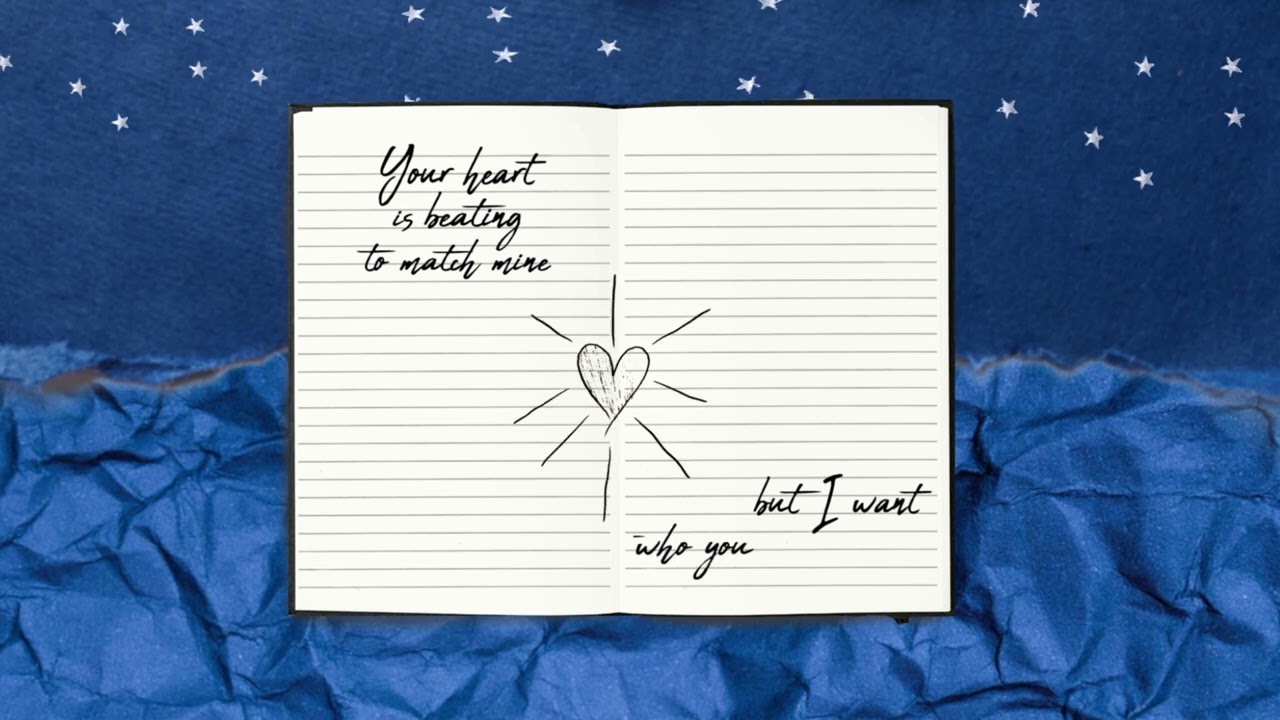 Your heart
is beating
to match mine
but I want
who you